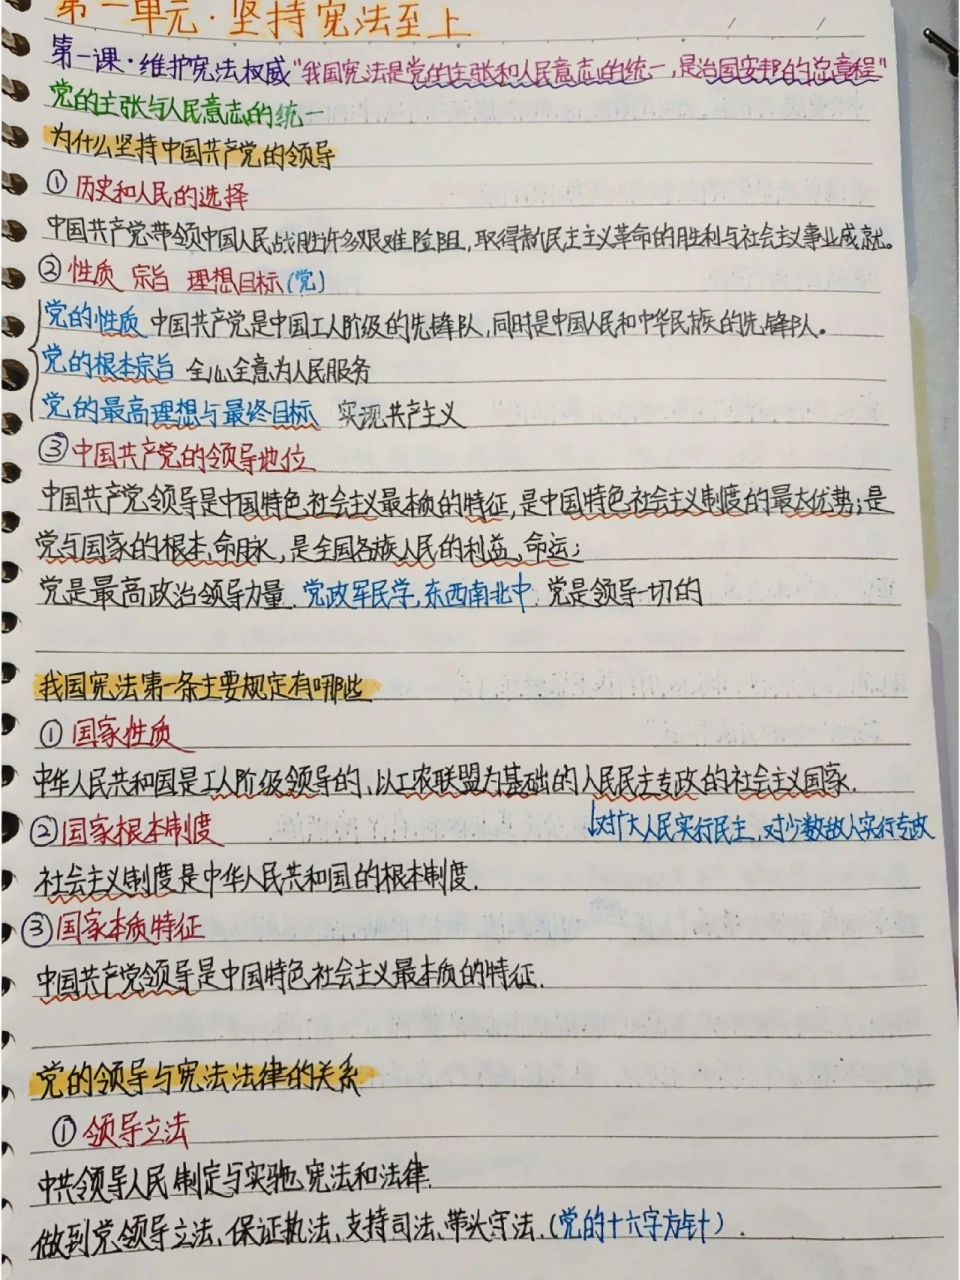 第一单元·坚持宪法至上
第一课·维护宪法权威"我国宪法是党的主张和人民意志的统一,是治国安邦的总章程"
党的主张与人民意志的统一
为什么坚持中国共产党的领导
①历史和人民的选择
中国共产党带领中国人民战胜许多艰难险阻,取得新民主主义革命的胜利与社会主义事业成就。
②性质 宗旨 理想目标(党)
党的性质 中国共产党是中国工人阶级的先锋队,同时是中国人民和中华民族的先锋队。
党的根本宗旨 全心全意为人民服务
党的最高理想与最终目标 实现共产主义
③中国共产党的领导地位
中国共产党领导是中国特色社会主义最本质的特征,是中国特色社会主义制度的最大优势;是
党与国家的根本、命脉,是全国各族人民的利益、命运;
党是最高政治领导力量.党政军民学,东西南北中.党是领导一切的
我国宪法第一条主要规定有哪些
①国家性质
中华人民共和国是工人阶级领导的、以工农联盟为基础的人民民主专政的社会主义国家.
②国家根本制度
对广大人民实行民主,对少数敌人实行专政
社会主义制度是中华人民共和国的根本制度.
③国家本质特征
中国共产党领导是中国特色社会主义最本质的特征.
党的领导与宪法法律的关系
①领导立法
中共领导人民制定与实施宪法和法律.
做到党领导立法、保证执法、支持司法、带头守法.(党的十六字方针).